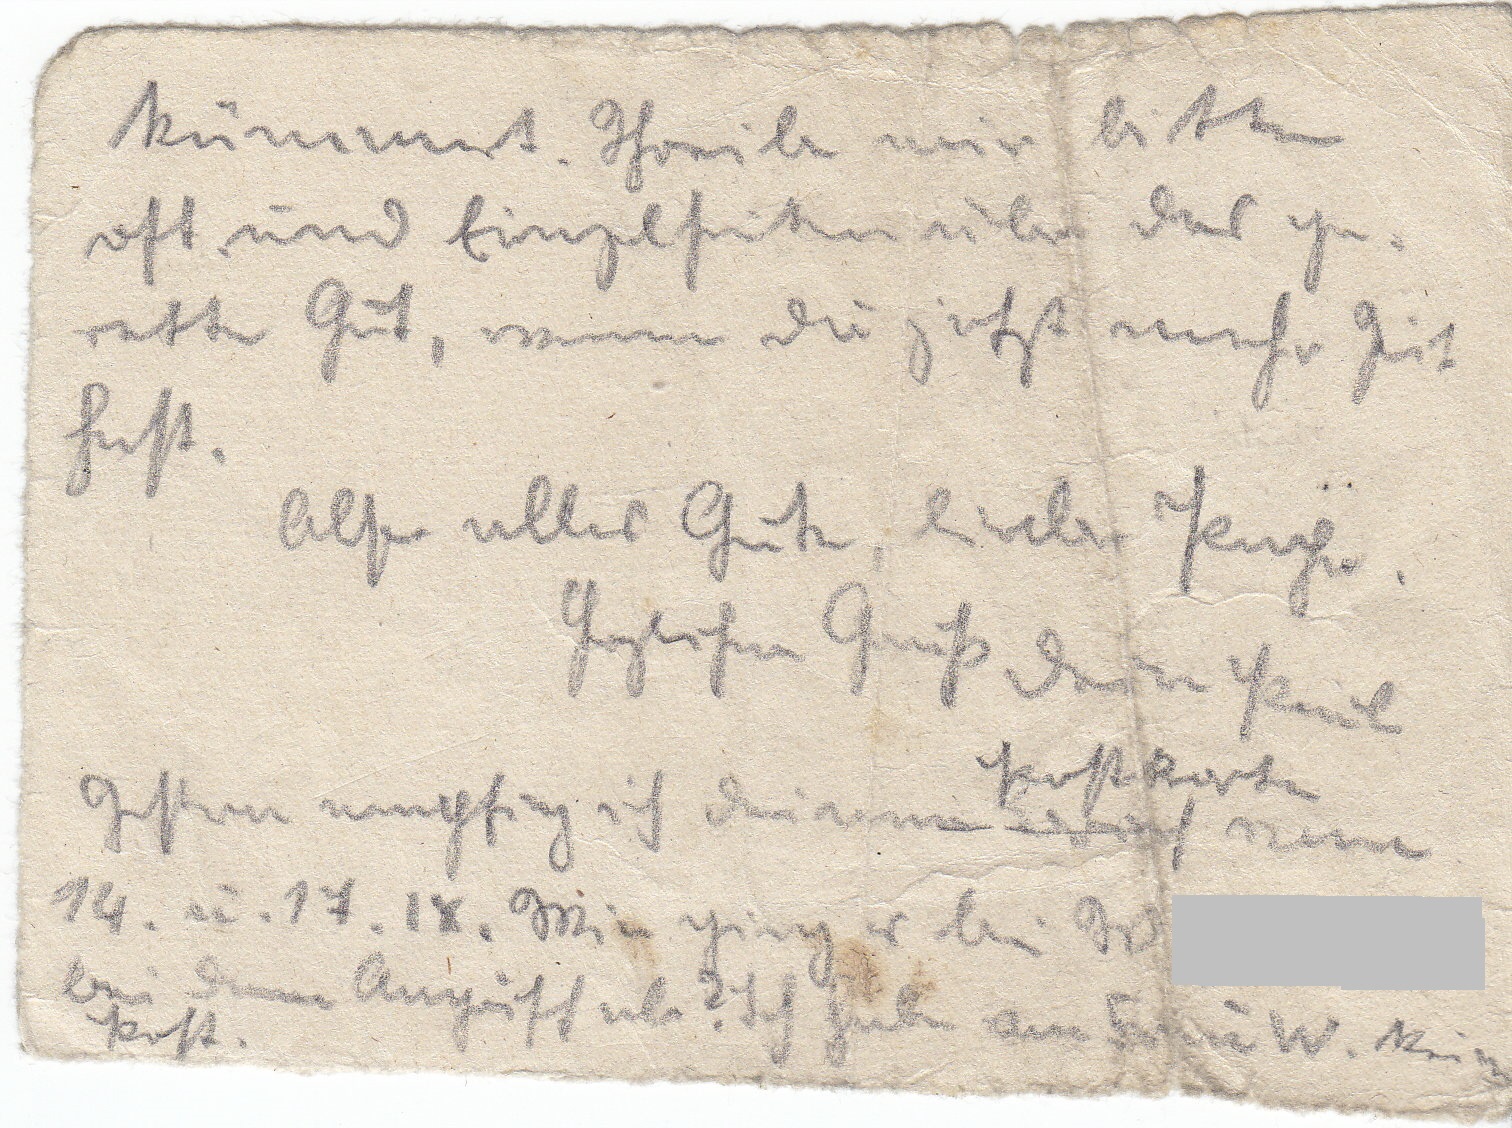 kümmert. Schreibe mir bitte
oft und Einzelheiten über das ge-
rettete Gut, wenn du jetzt mehr Zeit
hast.
Also alles Gute, lieber
Herzlichen Gruß dein Paul
Postkarte
Gestern empfing ich deinen vom
14. u. 17. IX. Wie ging es bei W
bei dem Angriff ab? Ich habe an Frau W. keine
Post.